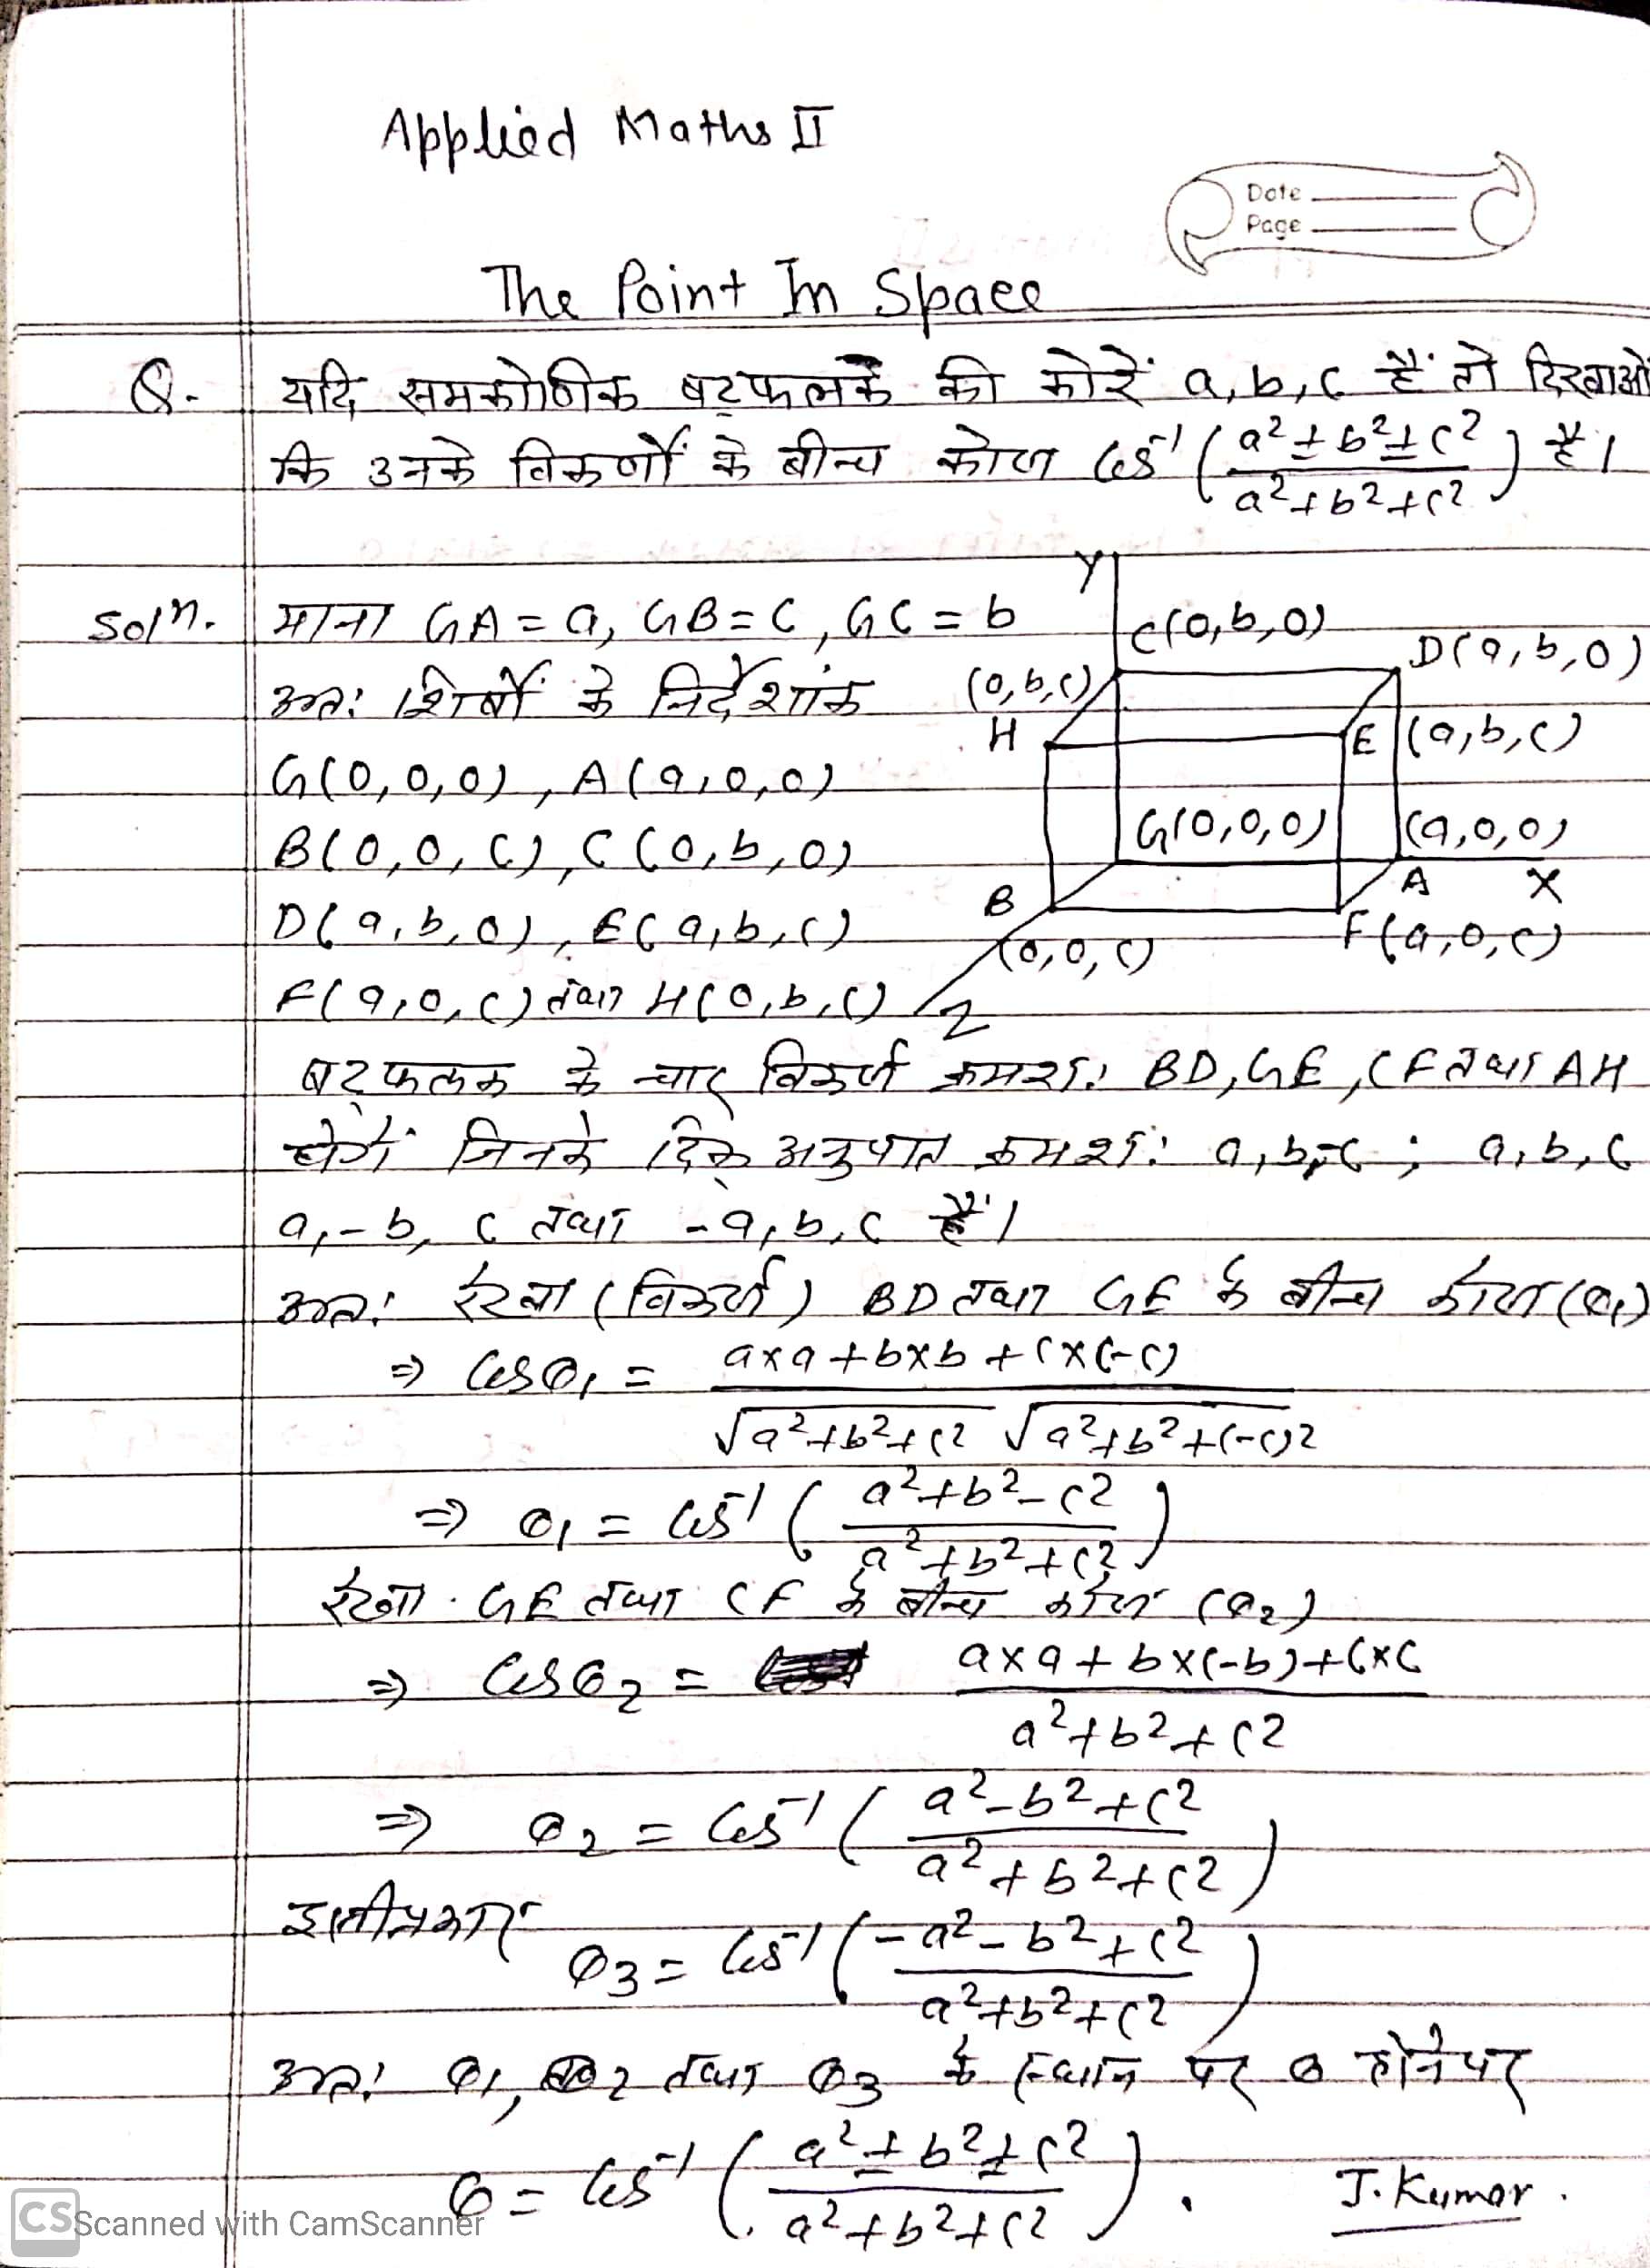 Applied Maths II
Date
Page
The Point In Space
Q. यदि समकोणिक षट्फलक की कोरें a, b, c हैं तो दिखाओ
कि उनके विकर्णों के बीच कोण Cos⁻¹ ( a² ± b² ± c² / a² + b² + c² ) है।
Solⁿ. माना GA = a, GB = C, GC = b
अतः शिर्षों के निर्देशांक
G(0,0,0), A(a,0,0)
B(0,0,C), C(0,b,0)
D(a,b,0), E(a,b,c)
F(a,0,c) तथा H(0,b,c)
Y
C(0,b,0)
D(a,b,0)
(0,b,c)
H
E (a,b,c)
G(0,0,0)
(a,0,0)
A X
B
(0,0,c)
F(a,0,c)
Z
षट्फलक के चार विकर्ण क्रमशः BD, GE, CF तथा AH
होगें जिनके दिक् अनुपात क्रमशः a, b, -c ; a, b, c
a, -b, c तथा -a, b, c है।
अतः रेखा (विकर्ण) BD तथा GE के बीच कोण (θ₁)
⇒ Cosθ₁ = a×a + b×b + c×(-c) / √a²+b²+c² √a²+b²+(-c)²
⇒ θ₁ = Cos⁻¹ ( a²+b²-c² / a²+b²+c² )
रेखा GE तथा CF के बीच कोण (θ₂)
⇒ Cosθ₂ = a×a + b×(-b) + c×c / a²+b²+c²
⇒ θ₂ = Cos⁻¹ ( a²-b²+c² / a²+b²+c² )
इसीप्रकार
θ₃ = Cos⁻¹ ( -a²-b²+c² / a²+b²+c² )
अतः θ₁, θ₂ तथा θ₃ के स्थान पर θ होने पर
θ = Cos⁻¹ ( a² ± b² ± c² / a²+b²+c² ).
J. Kumar.
CS Scanned with CamScanner